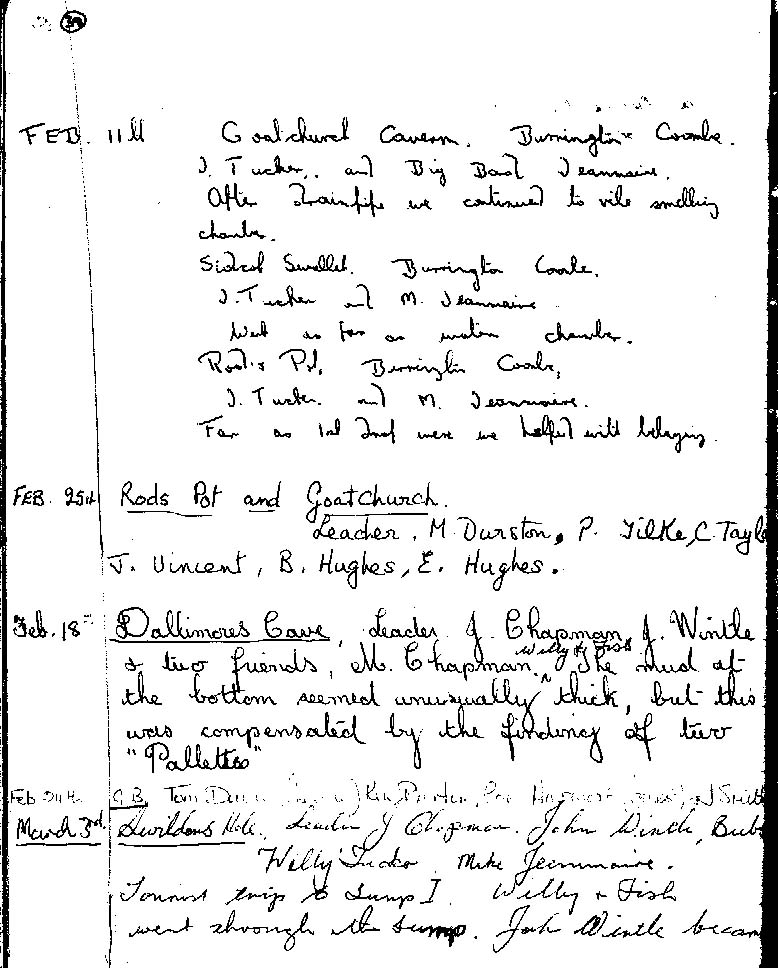 FEB. 11th Goatchurch Cavern. Burrington Coombe.
J. Tucker, and Big Bad Jeanmaire.
After drainpipe we continued to vile smelling
chamber.
Sidcot Swallet. Burrington Coombe.
J. Tucker and M. Jeanmaire
Went as far as water chamber.
Rod's Pot, Burrington Coombe,
J. Tucker and M. Jeanmaire.
Far as were we helped with belaying.
FEB. 25th Rods Pot and Goatchurch.
Leader, M Durston, P. Filke, C. Tayl
J. Vincent, B. Hughes, E. Hughes.
Feb. 18th Dallimores Cave, Leader J. Chapman, J. Wintle
Willy & Fish
& two friends, M. Chapman. The mud at
the bottom seemed unusually thick, but this
was compensated by the finding of two
"Pallettes"
Feb 24th G.B. Tom Ken J Smith
March 3rd. Swildons Hole. Leader J Chapman. John Wintle, Bub
Willy Tucker Mike Jeanmaire.
Tourist trip to Sump I. Willy & Fish
went through the sump. John Wintle becam